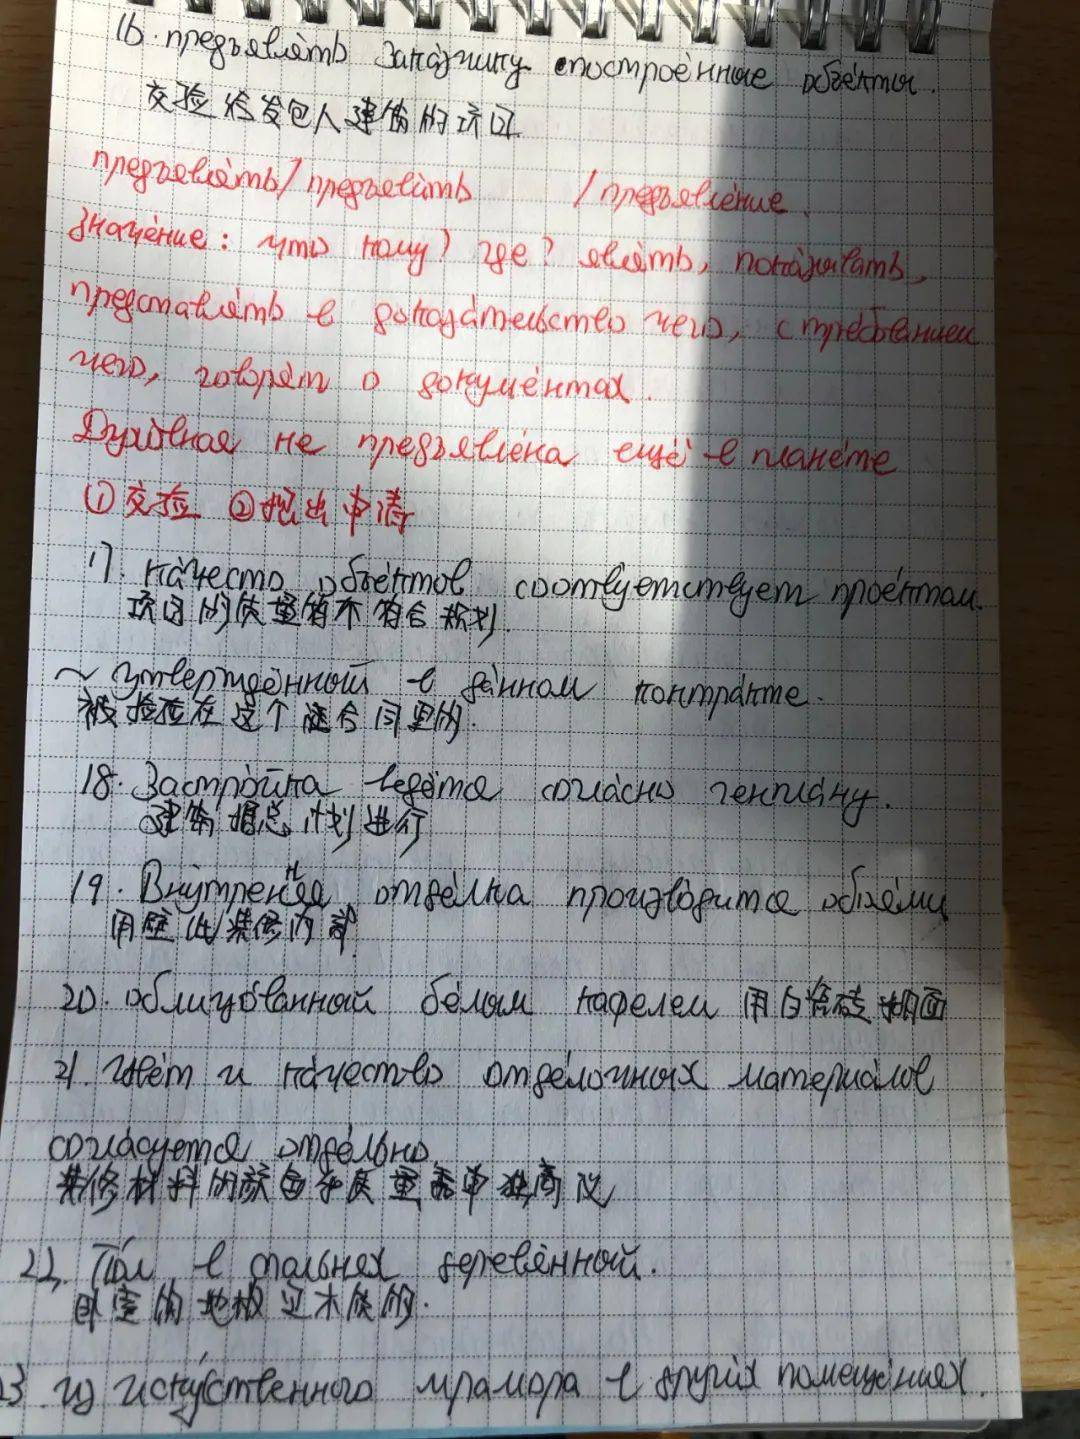 16. предъявля́ть зака́зчику построе́нные объе́кты.
交验给发包人建筑的项目
предъявля́ть/предъяви́ть /предъявле́ние.
Значе́ние: что кому) где? явля́ть, пока́зывать,
представля́ть в доказа́тельство чего, с тре́бованием
чего, говоря́т о докуме́нтах.
Духо́вная не предъявле́на ещё в
①交验 ②提出申请
17. ка́често объе́ктов соотве́тствует прое́ктам.
项目的质量 符合规划.
~ Утверждённый в да́нном контра́кте.
被 在这个 合同里的.
18. Застро́йка ведётся согла́сно генпла́ну.
建筑据总计划进行
19. Вну́тренняя отде́лка произво́дится обо́ями
用壁纸装修内部
20. облицо́ванный бе́лым кафелем 用白瓷砖 面
21. цвет и ка́чество отде́лочных материа́лов
согласу́ется отде́льно.
装修材料的颜色和质量需单独商议
22. Пол в спальнях деревя́нный.
卧室的地板 木质的.
23. из иску́сственного мрамора в други́х помеще́ниях.